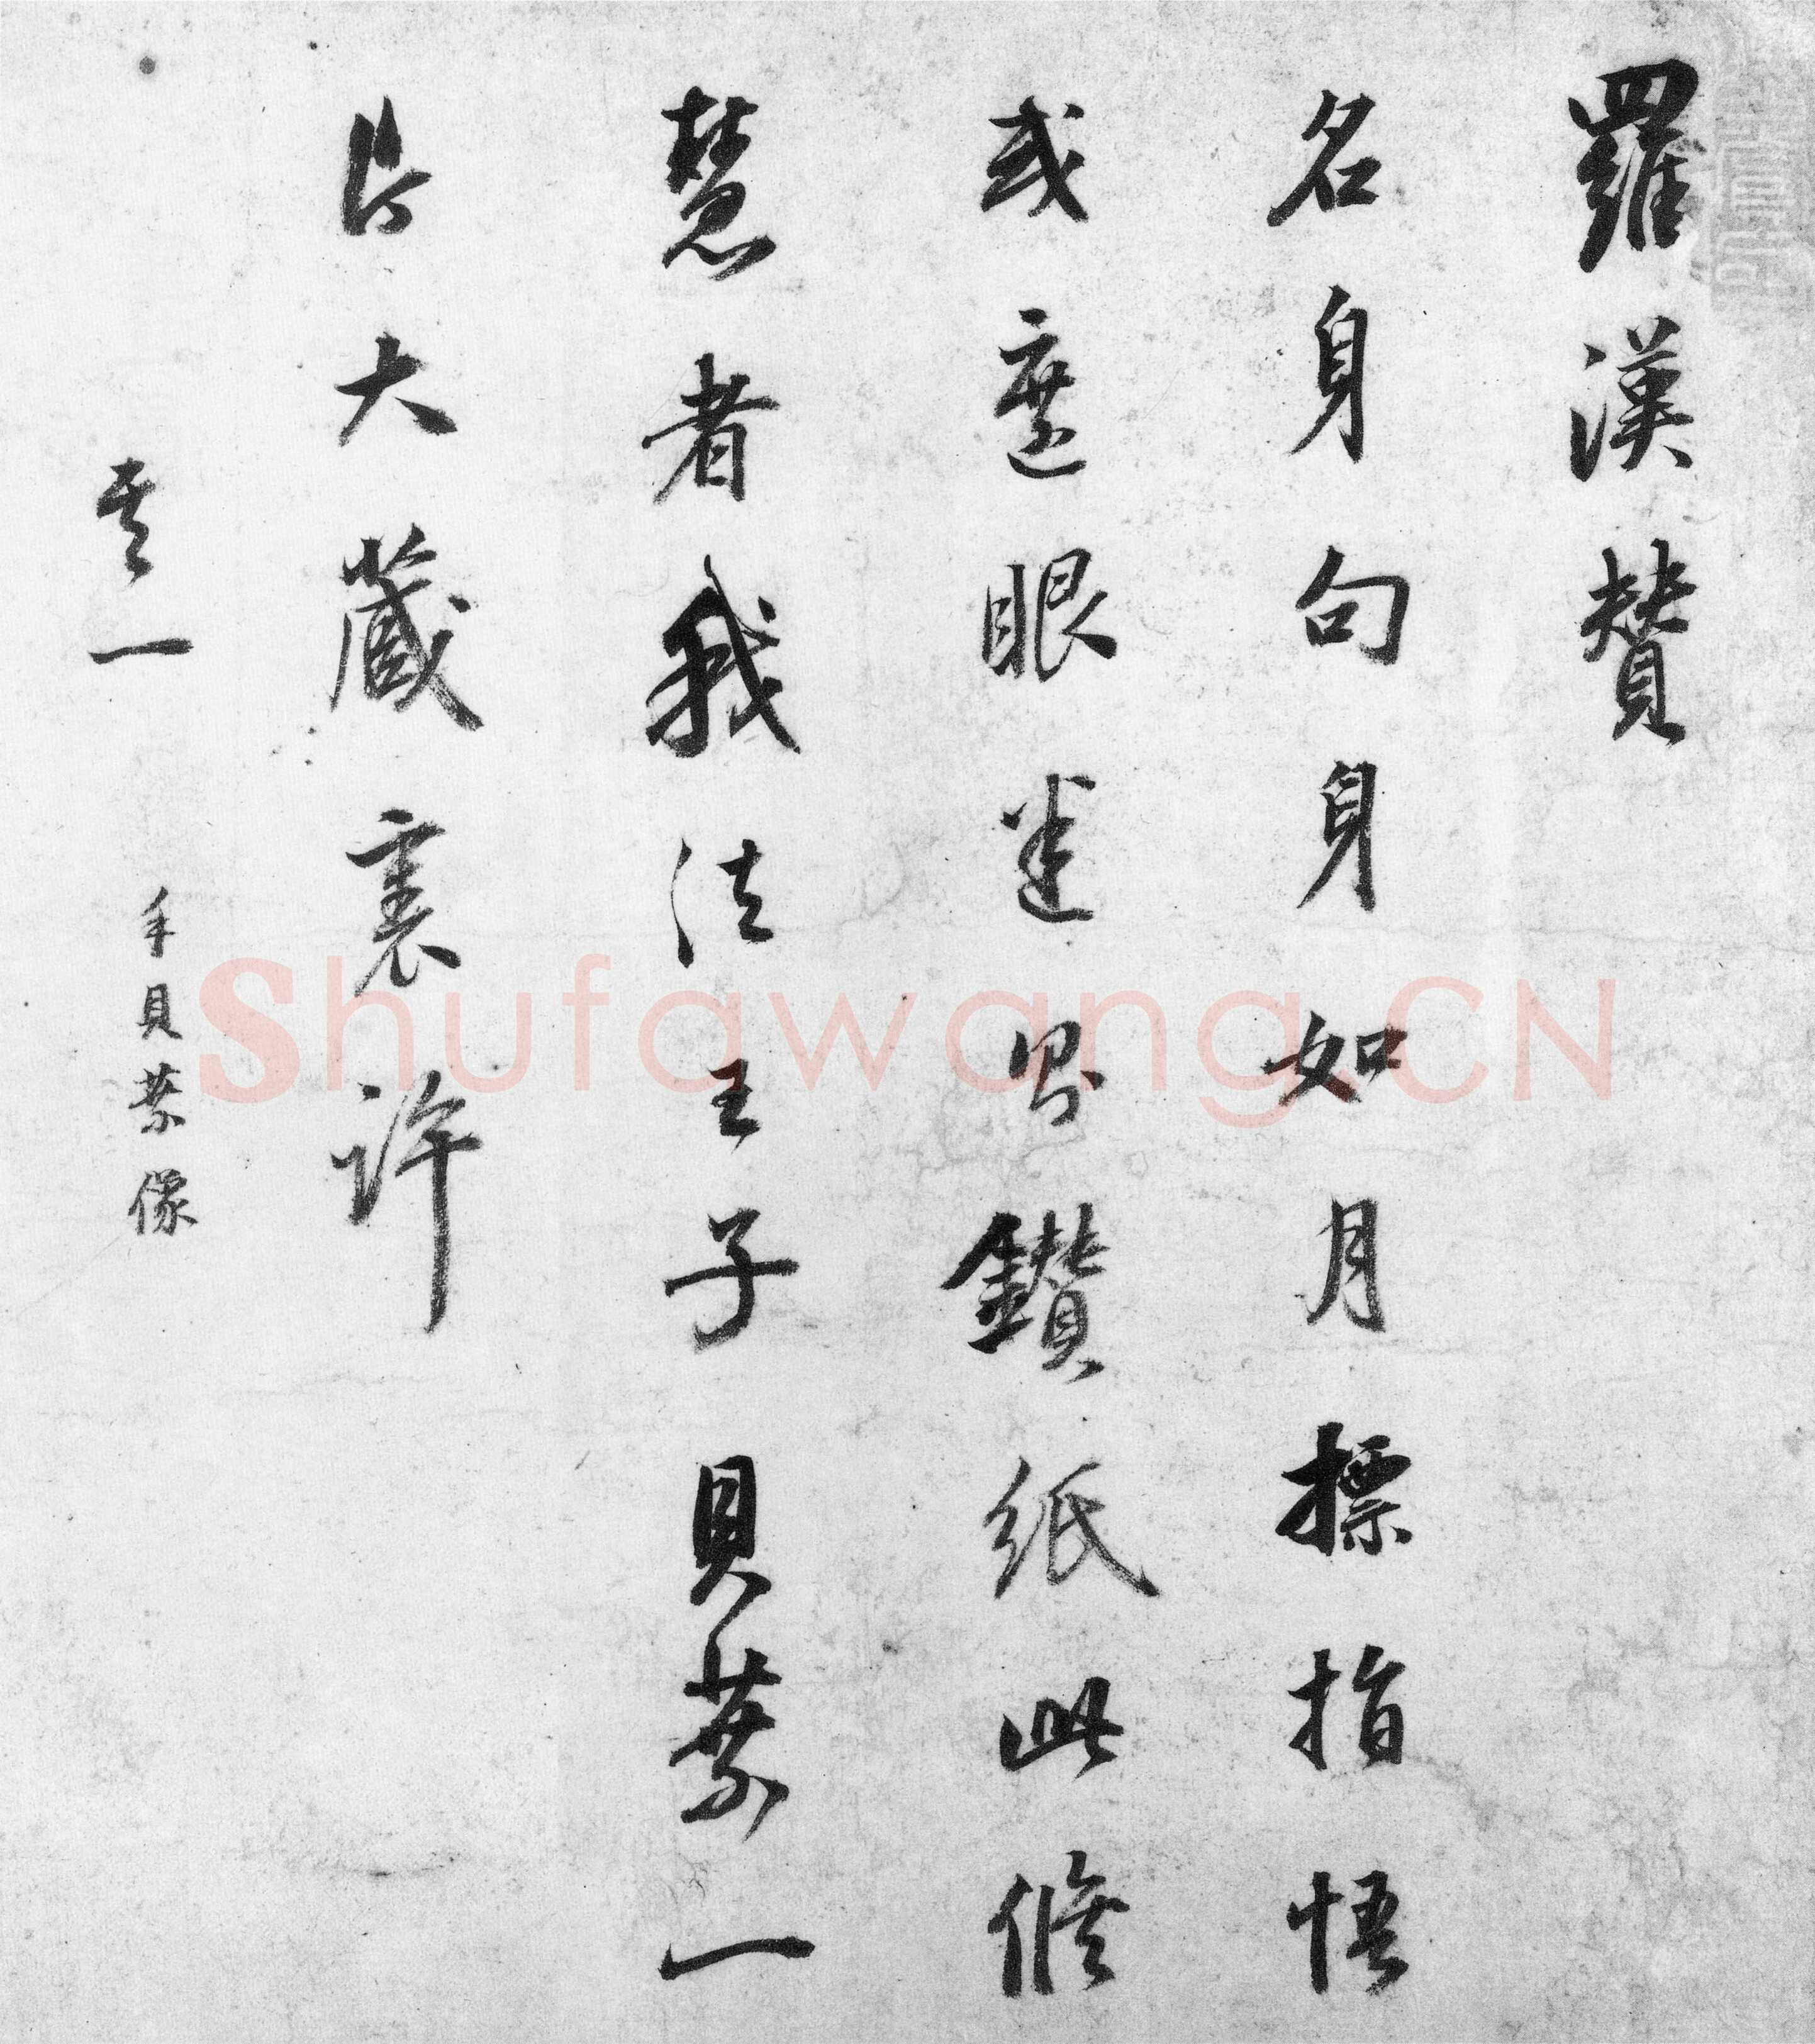 羅漢贊
名身句身如月標指悟
或遮眼迷則鑽紙此修
慧者我法王子貝葉一
片大藏裏許
其一 手貝葉像
Shufawang.CN